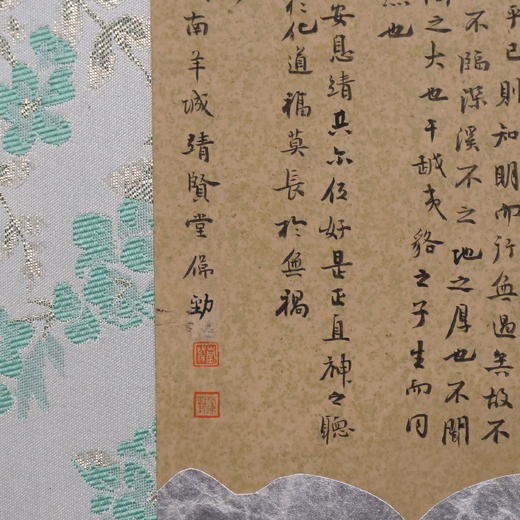 乎己則知明而行無過矣故不
不臨深溪不之地之厚也不聞
之大也干越夷貉之子生而同
然也
安息靖共尔位好是正直神之聽
化道福莫長於無禍
南羊城靖賢堂
勁